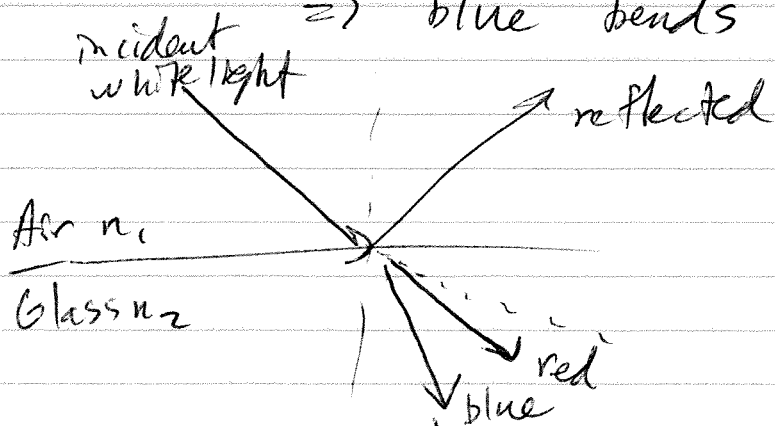 => blue bends
incident
white light
reflected
Air n₁
Glass n₂
red
blue